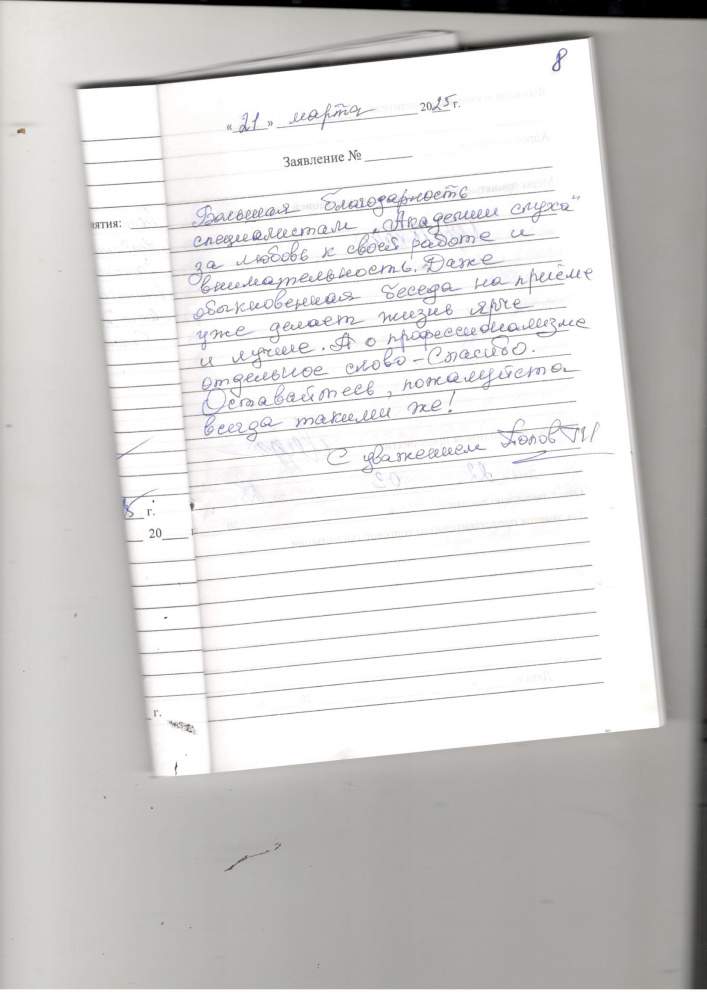 8
«21» марта 2025 г.
Заявление №
Большая благодарность
специалистам „Академии слуха"
за любовь к своей работе и
внимательность. Даже
обыкновенная беседа на приёме
уже делает жизнь ярче
и лучше. А о профессионализме
отдельное слово - Спасибо.
Оставайтесь, пожалуйста
всегда такими же!
С уважением Попов
ятия:
5 г.
20 г.
г.